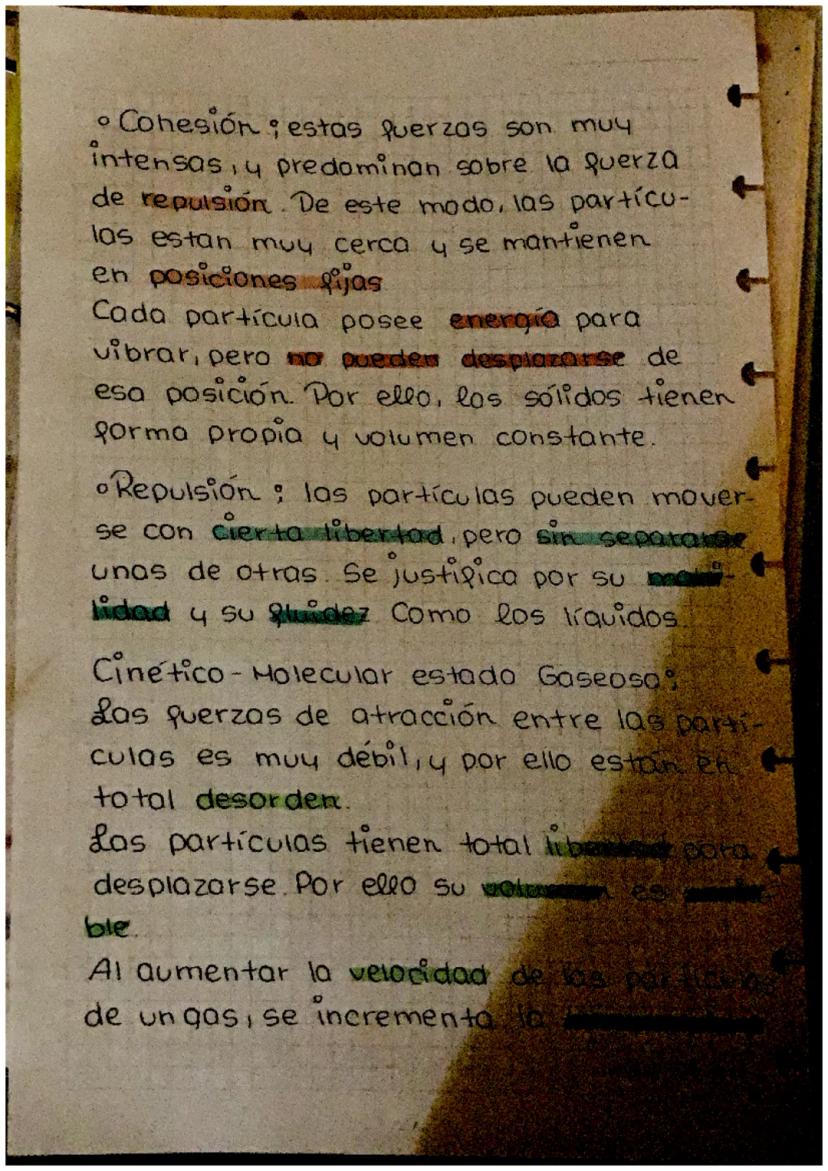 ° Cohesión: estas fuerzas son muy
intensas, y predominan sobre la fuerza
de repulsión. De este modo, las partícu-
las estan muy cerca y se mantienen
en posiciones fijas
Cada partícula posee energía para
vibrar, pero no pueden desplazarse de
esa posición. Por ello, los sólidos tienen
forma propia y volumen constante.
° Repulsión: las partículas pueden mover-
se con cierta libertad, pero sin separarse
unas de otras. Se justifica por su
lidad y su fluidez Como los líquidos.
Cinético-Molecular estado Gaseoso:
Las fuerzas de atracción entre las partí-
culas es muy débil, y por ello están en
total desorden.
Las partículas tienen total libertad para
desplazarse. Por ello su volumen es
ble.
Al aumentar la velocidad de las partículas
de un gas, se incrementa la